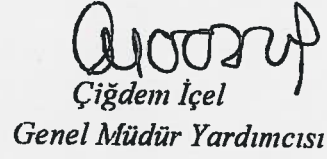 Çiğdem İçel
Genel Müdür Yardımcısı